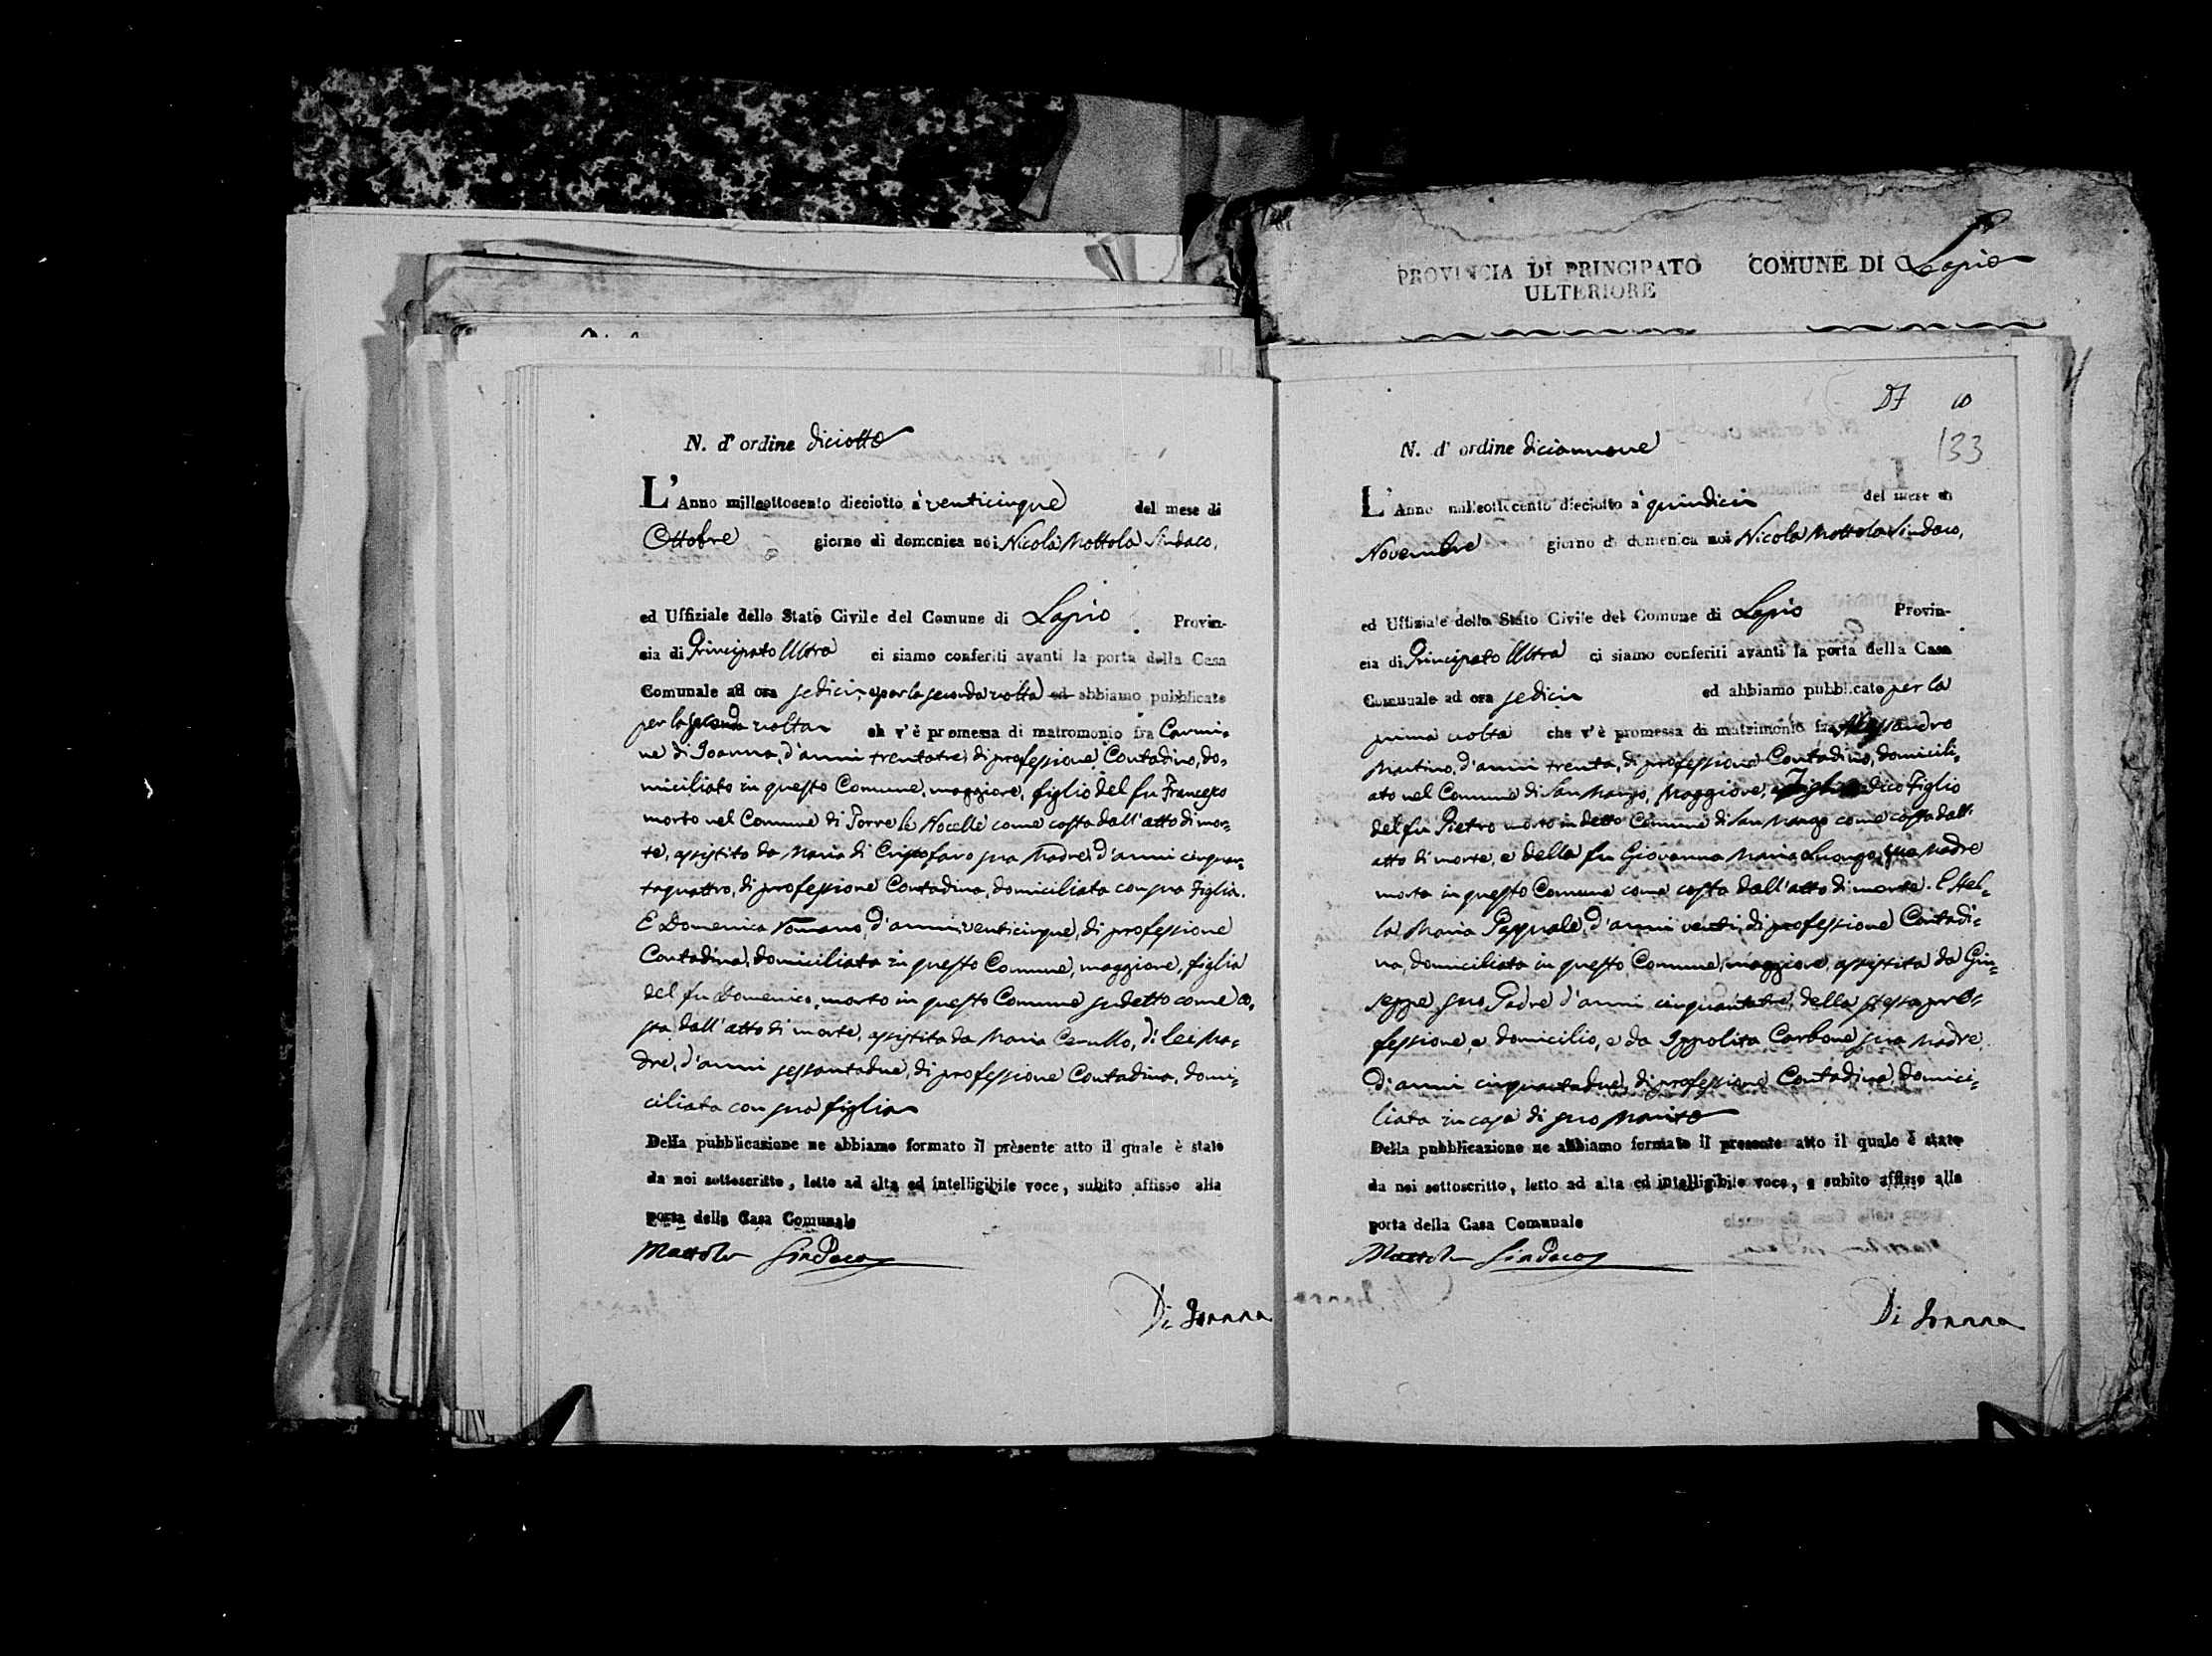 PROVINCIA DI PRINCIPATO
ULTERIORE
COMUNE DI Lapio
N. d' ordine diciotto
L'Anno milleottocento dieciotto a' venticinque del mese di
Ottobre giorno di domenica noi Nicola Mottola Sindaco,
ed Uffiziale dello Stato Civile del Comune di Lapio Provin-
cia di Principato Ultra ci siamo conferiti avanti la porta della Casa
Comunale ad ora sedici, e per la seconda volta ed abbiamo pubblicato
per la seconda volta ch v'è promessa di matromonio fra Carmi-
ne di Joanna, d'anni trentatre, di professione Contadino, do-
miciliato in questo Comune, maggiore, figlio del fu Francesco
morto nel Comune di Torre le Nocelle come costa dall'atto di mor-
te, assistito da Maria di Cristofaro sua Madre, d'anni cinquan-
taquattro, di professione Contadina, domiciliata con suo Figlio.
E Domenica Romano, d'anni venticinque, di professione
Contadina, domiciliata in questo Comune, maggiore, figlia
del fu Domenico, morto in questo Comune sudetto come co-
sta dall'atto di morte, assistita da Maria Carullo, di lei Ma-
dre, d'anni sessantadue, di professione Contadina, domi-
ciliata con sua figlia
Della pubblicazione ne abbiamo formato il presente atto il quale è stato
da noi sottoscritto, letto ad alta ed intelligibile voce, subito affisso alla
porta della Casa Comunale
Mottola Sindaco
Di Ioanna
10
133
N. d' ordine diciannove
L'Anno milleottocento dieciotto a' quindici del mese di
Novembre giorno di domenica noi Nicola Mottola Sindaco,
ed Uffiziale dello Stato Civile del Comune di Lapio Provin-
cia di Principato Ultra ci siamo conferiti avanti la porta della Casa
Comunale ad ora sedici ed abbiamo pubblicato per la
prima volta che v'è promessa di matrimonio fra Alessandro
Martino, d'anni trenta, di professione Contadino, domicili-
ato nel Comune di San Mango, Maggiore, dico Figlio
del fu Pietro morto in detto Comune di San Mango come costa dall'
atto di morte, e della fu Giovanna Maria Luongo, sua Madre
morta in questo Comune come costa dall'atto di morte. E Stel-
la Maria Pasquale, d'anni venti, di professione Contadi-
na, domiciliata in questo Comune, maggiore, assistita da Giu-
seppe, suo Padre d'anni cinquantatre, della stessa pro-
fessione, e domicilio, e da Ippolita Carbone sua Madre
d'anni cinquantadue, di professione Contadina, domici-
liata in casa di suo Marito
Della pubblicazione ne abbiamo formato il presente atto il quale è stato
da noi sottoscritto, letto ad alta ed intelligibile voce, e subito affisso alla
porta della Casa Comunale
Mottola Sindaco
Di Ioanna